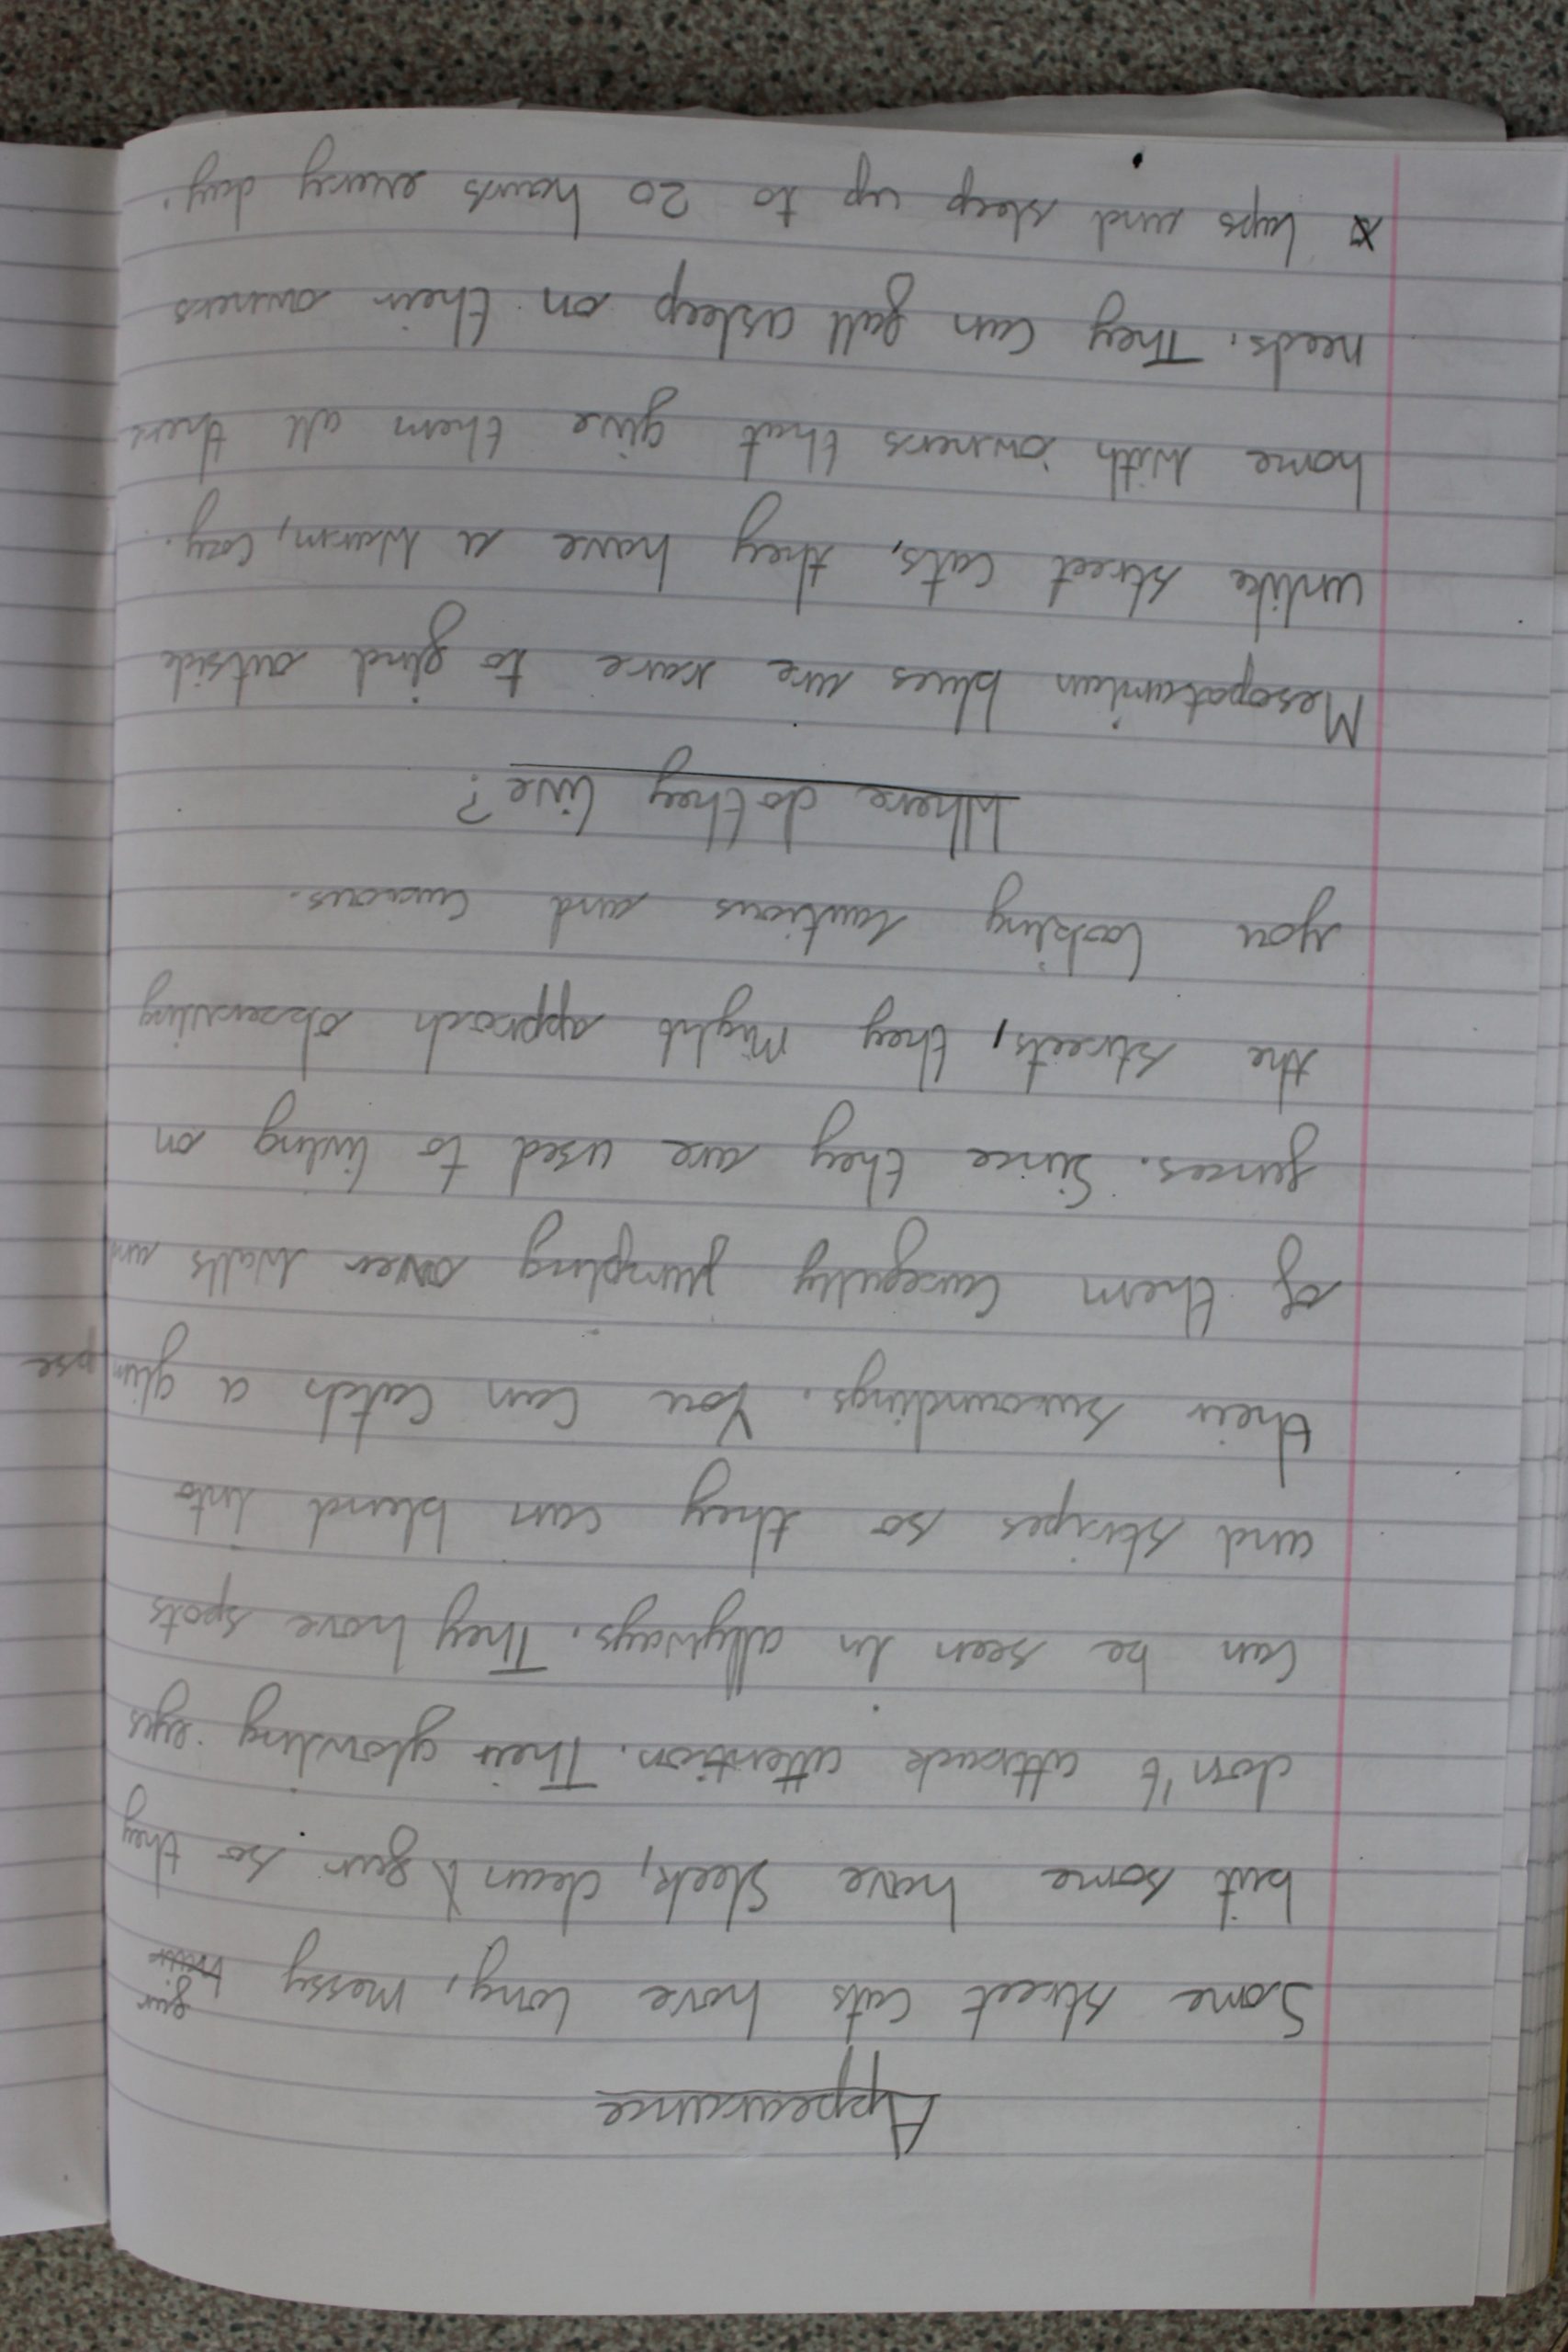 Appearance
Some street cats have long, messy hair fur
but some have sleek, clean fur so they
don't attrack attention. Their glowing eyes
can be seen in allyways. They have spots
and stripes so they can blend into
their suroundings. You can catch a glimpse
of them carefully jumping over walls and
fences. Since they are used to living on
the streets, they might approch observing
you looking cautious and curious.
Where do they live?
Mesopotamian blues are rare to find outside
unlike street cats, they have a warm, cozy
home with owners that give them all there
needs. They can fall asleep on their owners
laps and sleep up to 20 hours every day.